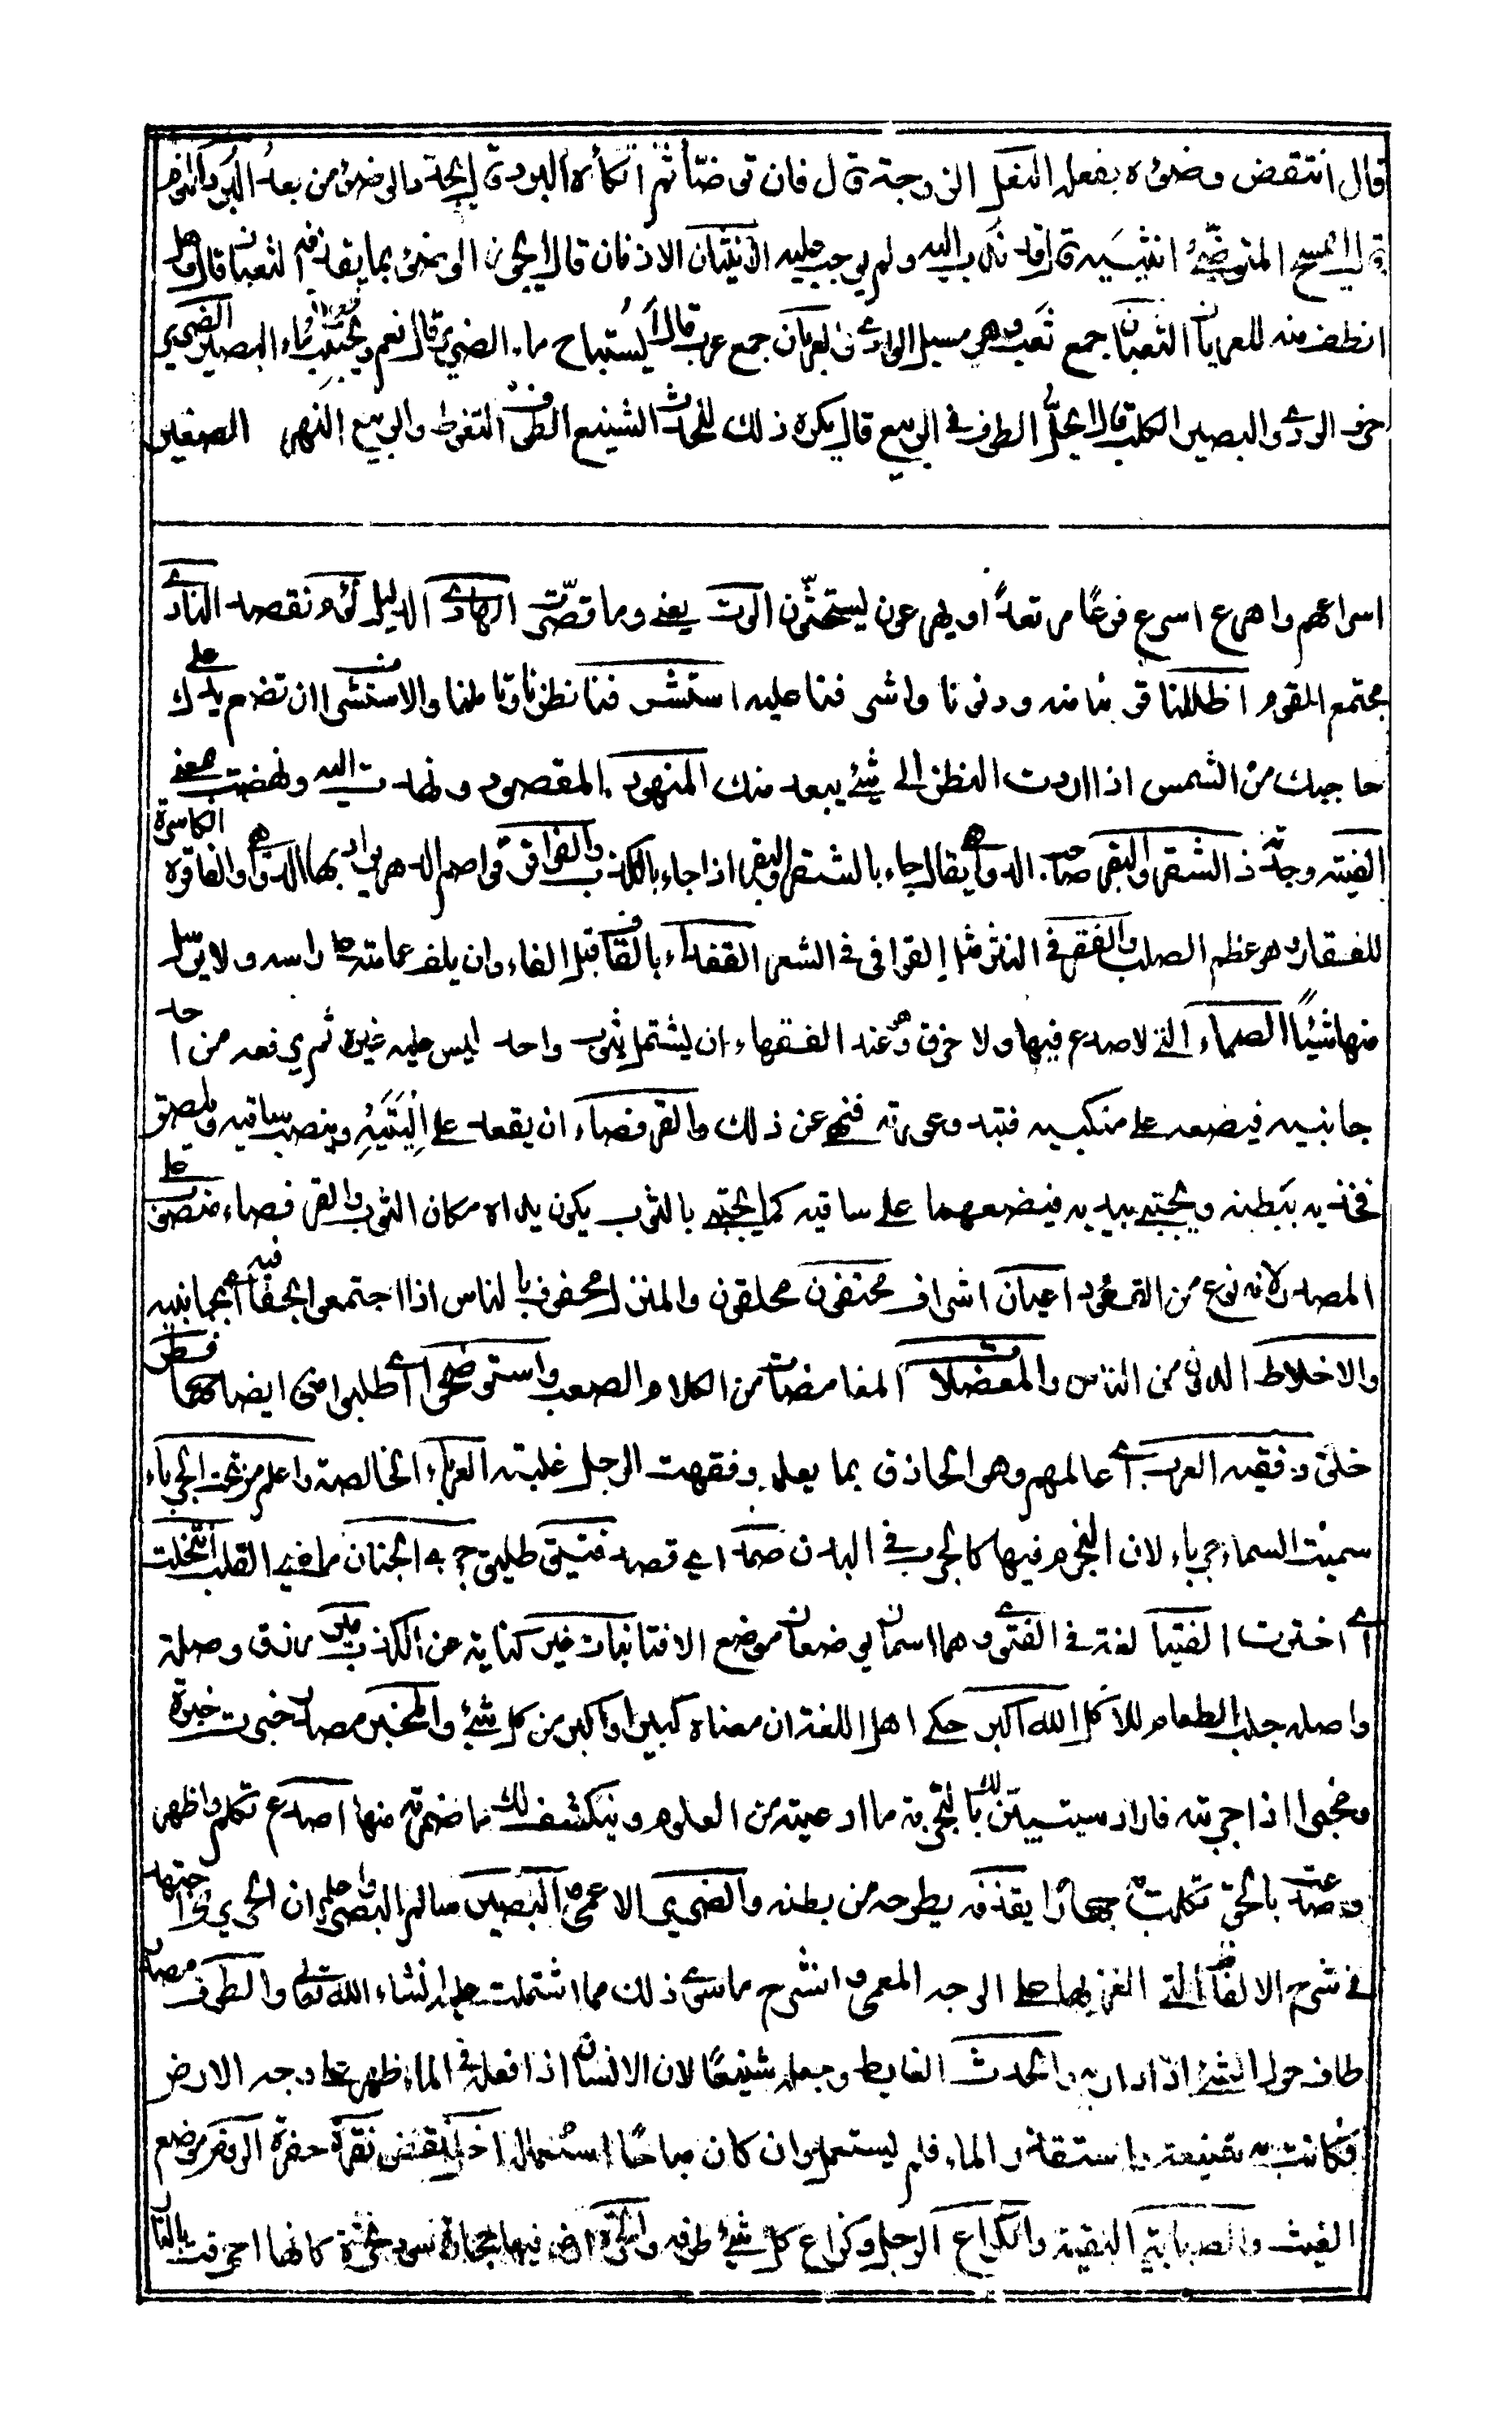 قال انتقض وضوءه بفعله النعل الزوجة قال فان توضأ ثم اتكأه البرد قال يجدد الوضوء من بعد البرد النوم
قال ايمسح المتوضئ انثييه قال قد ندب اليه ولم يوجب عليه الانثيان الاذنان قال ايجوز الوضوء بما يقذفه الثعبان قال وهل
انظف منه للعربان الثعبان جمع ثعب وهو مسيل الوادي والعربان جمع عرب قال ايستباح ماء الضرير قال نعم ويجتنب ماء البصير الضرير
حرف الوادي والبصير الكلب قال ايحل الطوف في الربيع قال يكره ذلك للحدث الشنيع الطوف التغوط والربيع النهر الصغير
اسراعهم واهرع اسرع فزعا مرتعدا او يهرعون يستحثون الوت يعني وما قصرت الهادي الدليل نؤم نقصد النادي
مجتمع القوم اظللنا قربنا منه ودنونا واشرفنا عليه استشرفنا نظرنا وتاملنا والاستشراف ان تضع يدك على
حاجبك من الشمس اذا اردت النظر الى شئ يبعد منك المنهود المقصود ونهدت اليه ونهضت بمعنى
الفيته وجدته ذا الشقر والبقر صاحب الدواهي يقال جاء بالشقر والبقر اذا جاء بالكذب والفواقر قواصم الدهر يراد بها الدواهي والفاقرة الكاسرة
للفقار وهو عظم الصلب والفقر في النثر مثل القوافي في الشعر القفداء بالقاف قبل الفاء وان يلف عمامته على راسه ولا يرسل
منها شيئا الصماء التي لا صدع فيها ولا خرق وعند الفقهاء ان يشتمل بثوب واحد ليس عليه غيره ثم يرفعه من احد
جانبيه فيضعه على منكبيه فتبدو عورته فنهي عن ذلك والقرفصاء ان يقعد على اليتيه وينصب ساقيه ويلصق
فخذيه ببطنه ويحتبي بيديه فيضعهما على ساقيه كما يحتبي بالثوب يكون يداه مكان الثوب والقرفصاء منصوب على
المصدر لانه نوع من القعود اعيان اشراف محتفون محلقون والمنزل محفوف بالناس اذا اجتمعوا بحفافيه اي بجانبيه
والاخلاط الدون من الناس والمعضلات الغامضات من الكلام والصعب واستوضحوا اي اطلبوا مني ايضاحها فطر
خلق وفقيه العرب اي عالمهم وهو الحاذق بما يعلم وفقهت الرجل غلبته العرباء الخالصة واعلم من تحت الجرباء
سميت السماء جرباء لان النجوم فيها كالجرب في البدن صمد اي قصد فتيق طليق جرئ الجنان ماضي القلب انتخلت
اي اخترت الفتيا لغة في الفتوى وهما اسمان يوضعان موضع الافتا نبات غير كناية عن الكذب مير رزق وصلة
واصله جلب الطعام للاكل الله اكبر حكى اهل اللغة ان معناه كبير او اكبر من كل شئ والمخبر مصدر خبرت خبرة
ومخبرا اذا جربته فاراد سيتبين لك بالتجربة ما ادعيته من العلوم وينكشف لك ما ضمرته منها اصدع تكلم واظهر
وصدعت بالحق تكلمت به جهارا يقذفه يطرحه من بطنه والضرير الاعمى البصير سالم البصر واعلم ان الحريري اجتهد
في شرح الالفاظ التي الغز بها على الوجه المعمى وانشرح ما سوى ذلك مما اشتملت عليه انشاء الله تعالى والطوف مصدر
طاف حول الشئ اذا دار به والحدث الغايط وجعله شنيعا لان الانسان اذا فعله في الماء ظهر على وجه الارض
فكانت به شنيعة واستقذر الماء فلم يستعمل وان كان مباحا استعماله نقرة حفرة الوقر موضع
الغيث والصبابة البقية والكراع الرجل وكراع كل شئ طرفه والحرة ارض فيها حجارة سود نخرة كانها احرقت بالنار